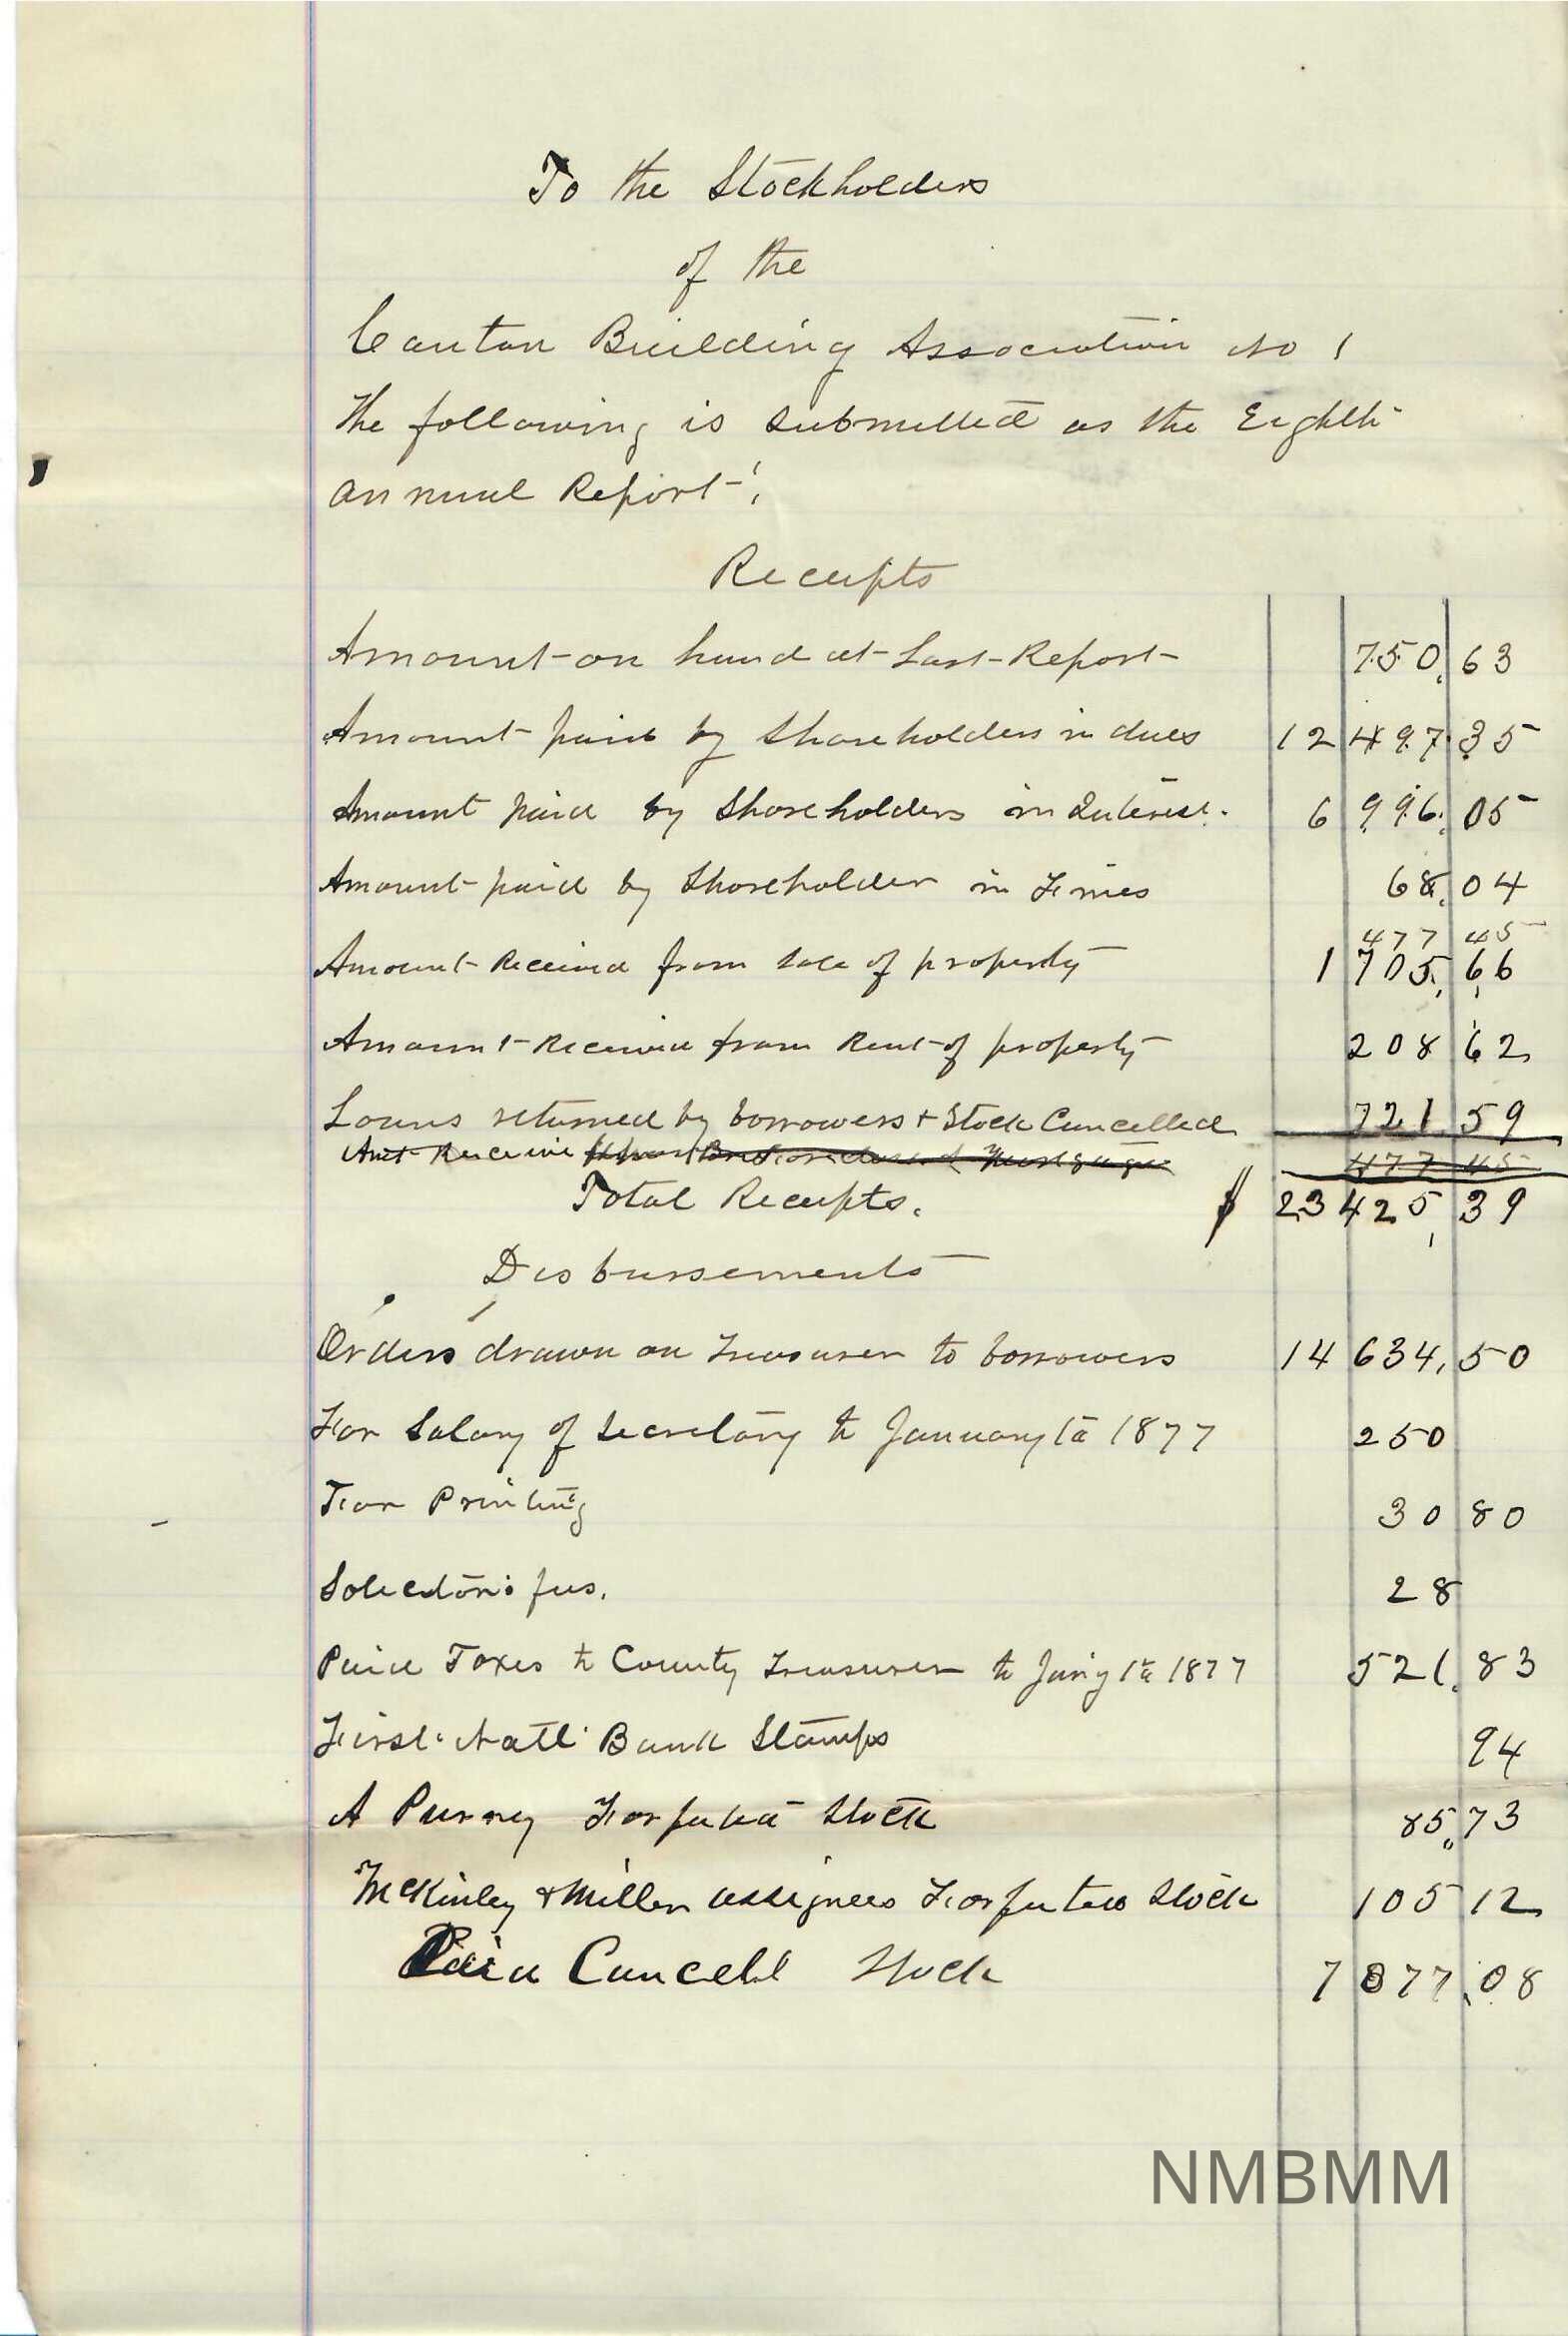 To the Stockholders
of the
Canton Building Association No 1
The following is submitted as the Eighth
annual Report:
Receipts
Amount on hand at Last Report 750.63
Amount paid by Shareholders in dues 12 497.35
Amount paid by Shareholders in Interest. 6 996.05
Amount paid by Shareholder in Fines 68.04
477 45
Amount Received from Sale of property 1 705.66
Amount Received from Rent of property 208 62
Loans returned by borrowers + Stock Cancelled 721 59
Amt Receive 477 45
Total Receipts. $ 23 425.39
Disbursements
Orders drawn on Treasurer to borrowers 14 634.50
For Salary of Secretary to January 1st 1877 250
For Printing 30 80
Solicitors fees. 28
Paid Taxes to County Treasurer to Jan'y 1st 1877 521.83
First Natl Bank Stamps 94
A Purney Forfeited Stock 85.73
McKinley & Miller assignees Forfeited Stock 105 12
Paid Cancell Stock 7 877.08
NMBMM